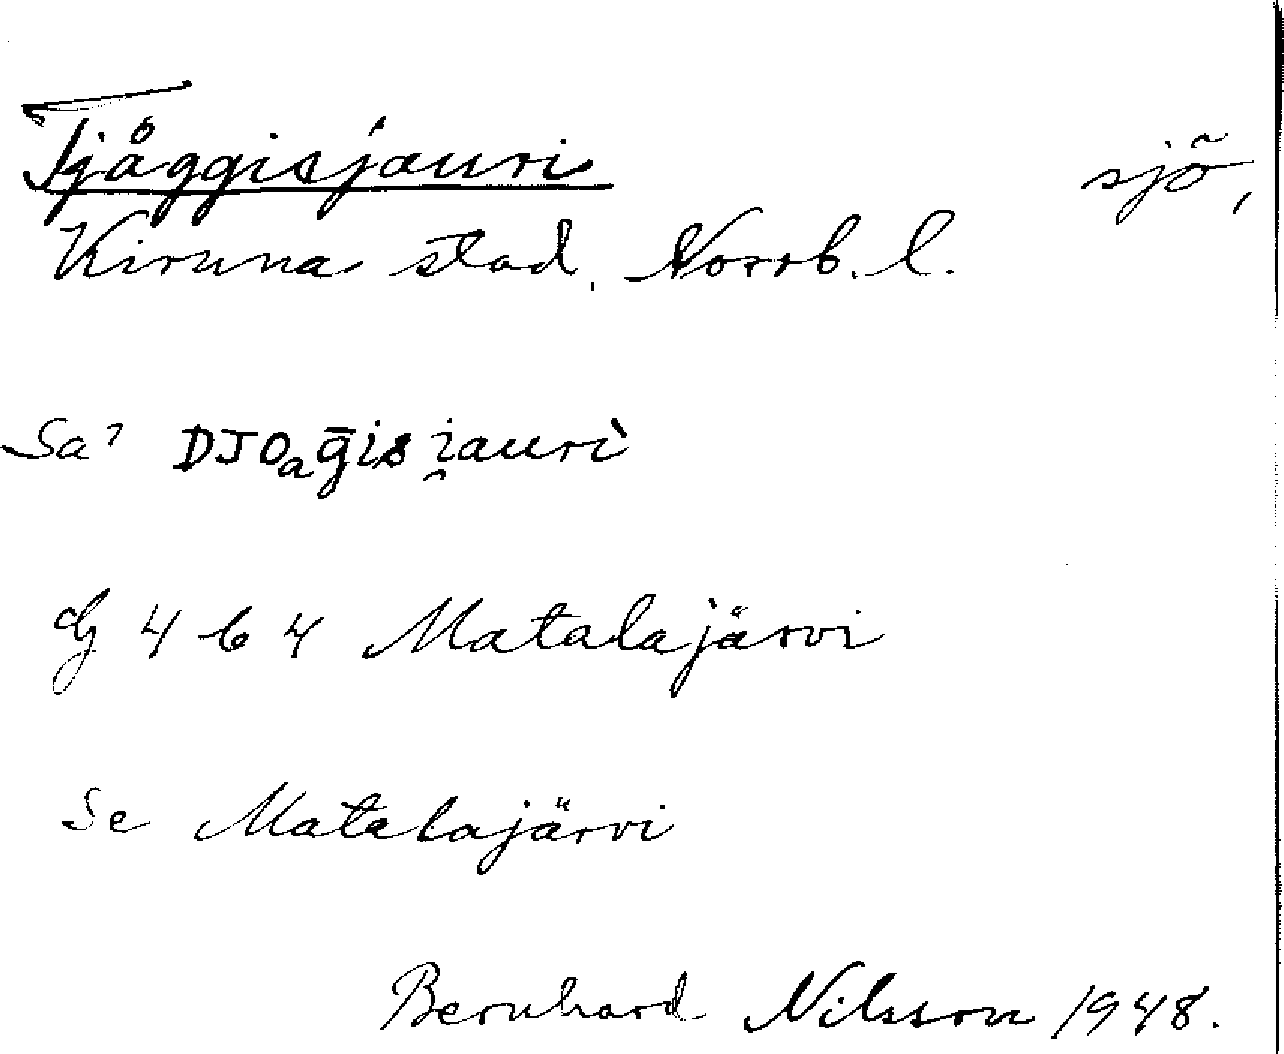 Tjåggisjauri sjö,
Kiruna stad, Norrb. l.
Sa' DJOaḡis i̯auri`
G 464 Matalajärvi
Se Matalajärvi
Bernhard Nilsson 1948.